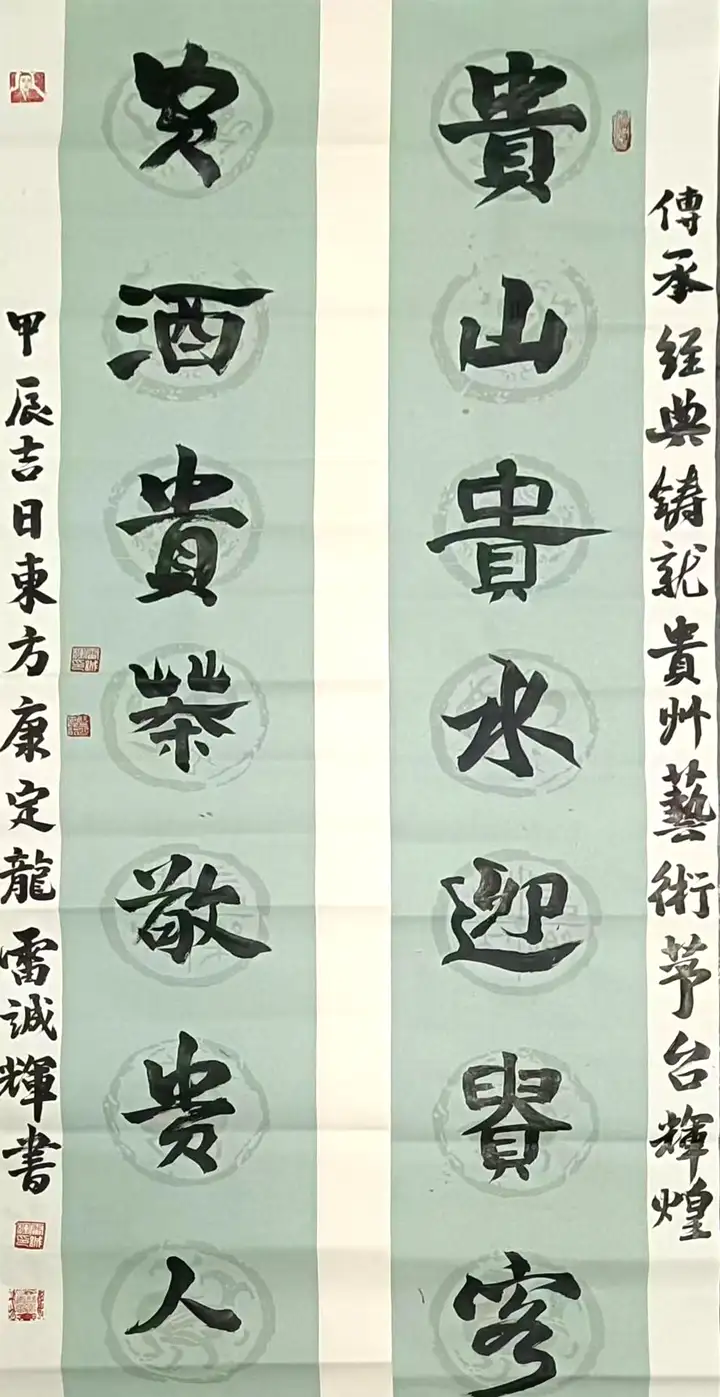 傳承经典铸就貴州藝術茅台輝煌
貴山貴水迎貴客
贵酒貴茶敬贵人
甲辰吉日東方康定龍雷誠輝書